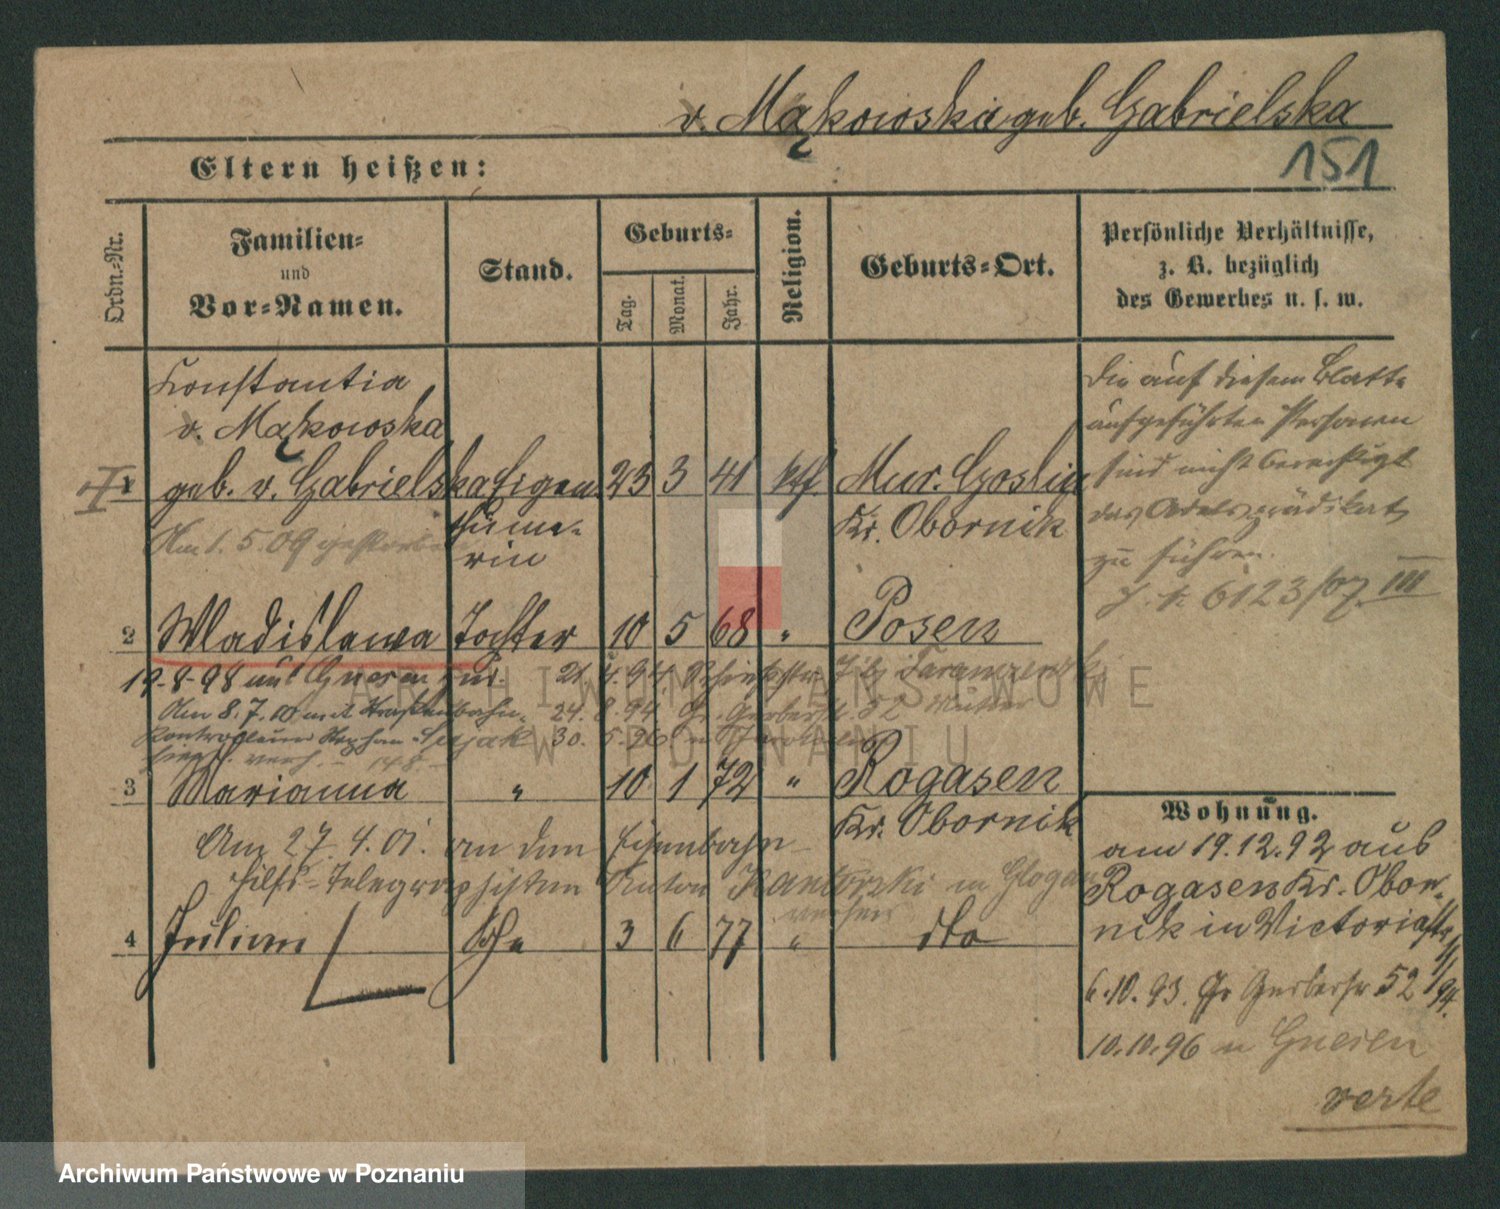 v. Mąkowska geb. Gabrielska
151
Eltern heißen:
Ordn.-Nr.
Familien-
und
Vor-Namen.
Stand.
Geburts-
Tag.
Monat.
Jahr.
Religion.
Geburts-Ort.
Persönliche Verhältnisse,
z. B. bezüglich
des Gewerbes u. s. w.
Konstantia
v. Mąkowska
1 geb. v. Gabrielska Eigen 23 3 41 kath. Mur. Goslin
thüme- Kr. Obornik
rin
Am 1.5.09 gestorben
Die auf diesem Blatte
aufgeführten Personen
sind nicht berechtigt
das Adelsprädikat
zu führen.
6123/07 III
2 Wladislawa Tochter 10 5 68 " Posen
19-8-98 aus Gnesen zur. 21. 4. 94
Am 8.7.00 mit Straßenbahn- 24. 8. 94 Gr. Gerberstr. 52 Mutter
Kontrolleur Stephan 30. 5. 96
verh.
3 Marianna " 10 1 72 " Rogasen
Kr. Obornik
Am 27.4.01. an dem Eisenbahn-
Hilfs-Telegraphisten Anton Kantorski in Glogau
verheir.
4 Julian Sohn 3 6 77 " dto
Wohnung.
am 19.12.92 aus
Rogasen Kr. Obor-
nik in Victoriastr.
6.10.93. Gr Gerberstr 52
10.10.96 n Gnesen
verte
ARCHIWUM PAŃSTWOWE
W POZNANIU
Archiwum Państwowe w Poznaniu